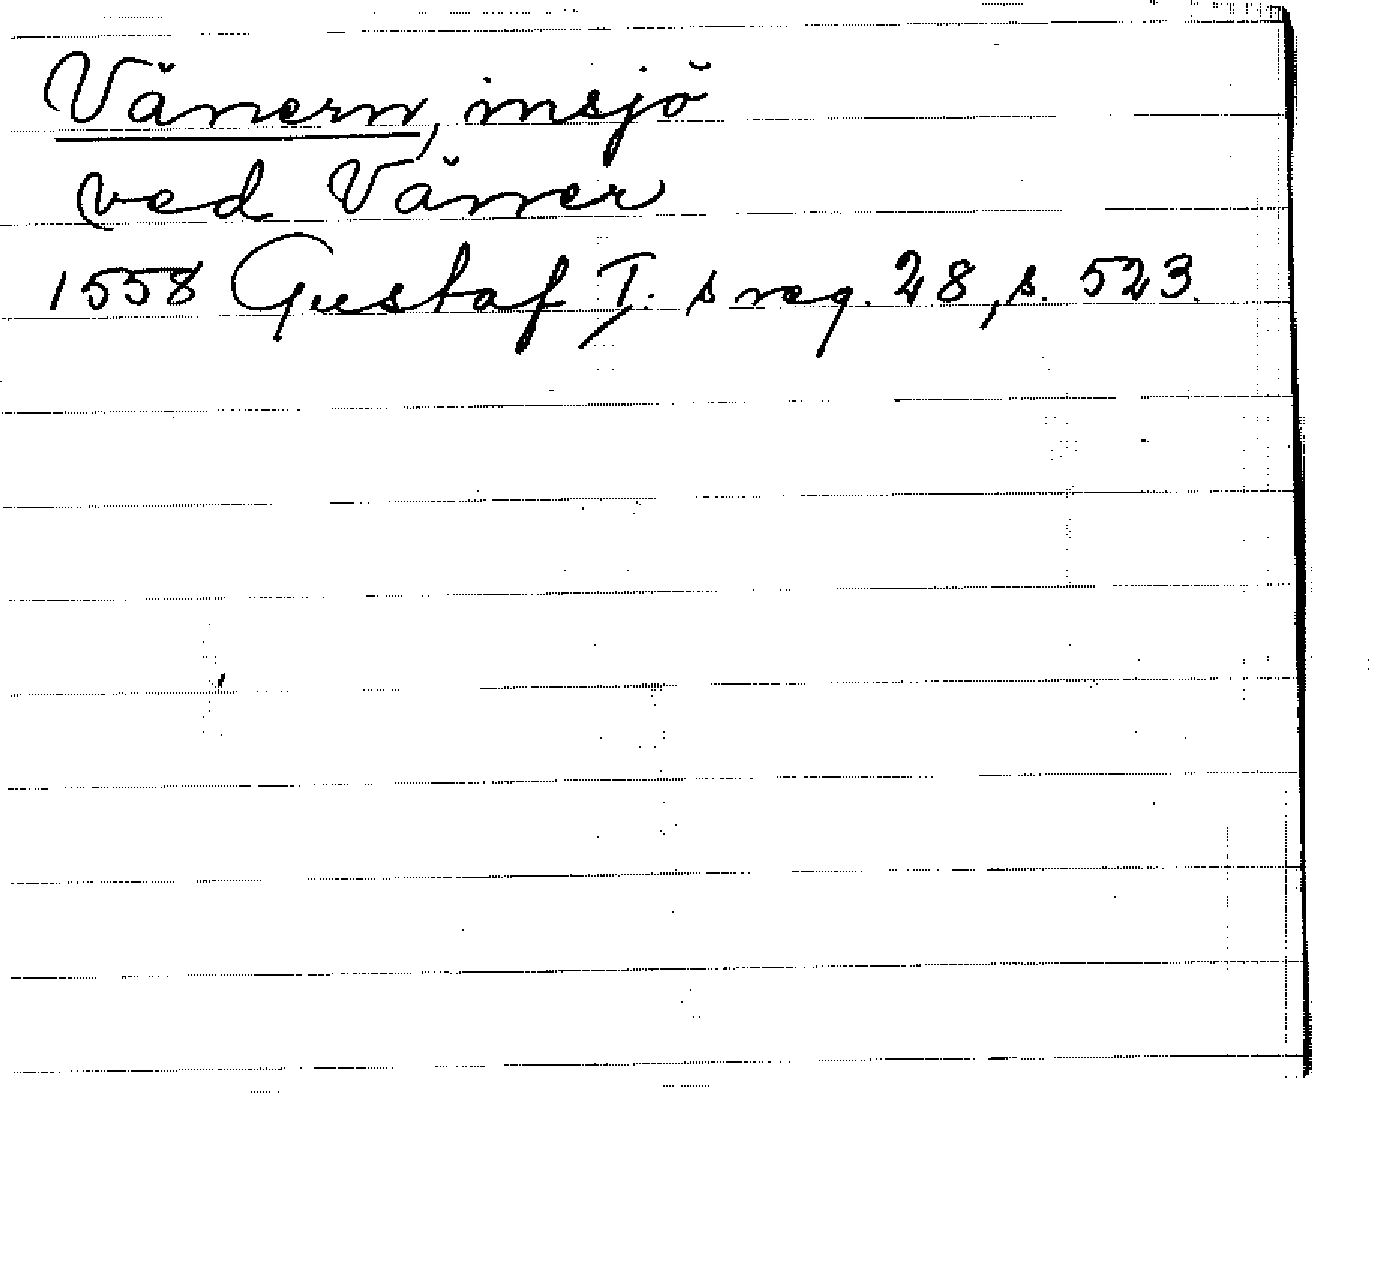 Vänern, insjö
ved Väner
1558 Gustaf I. s reg. 28, s. 523.